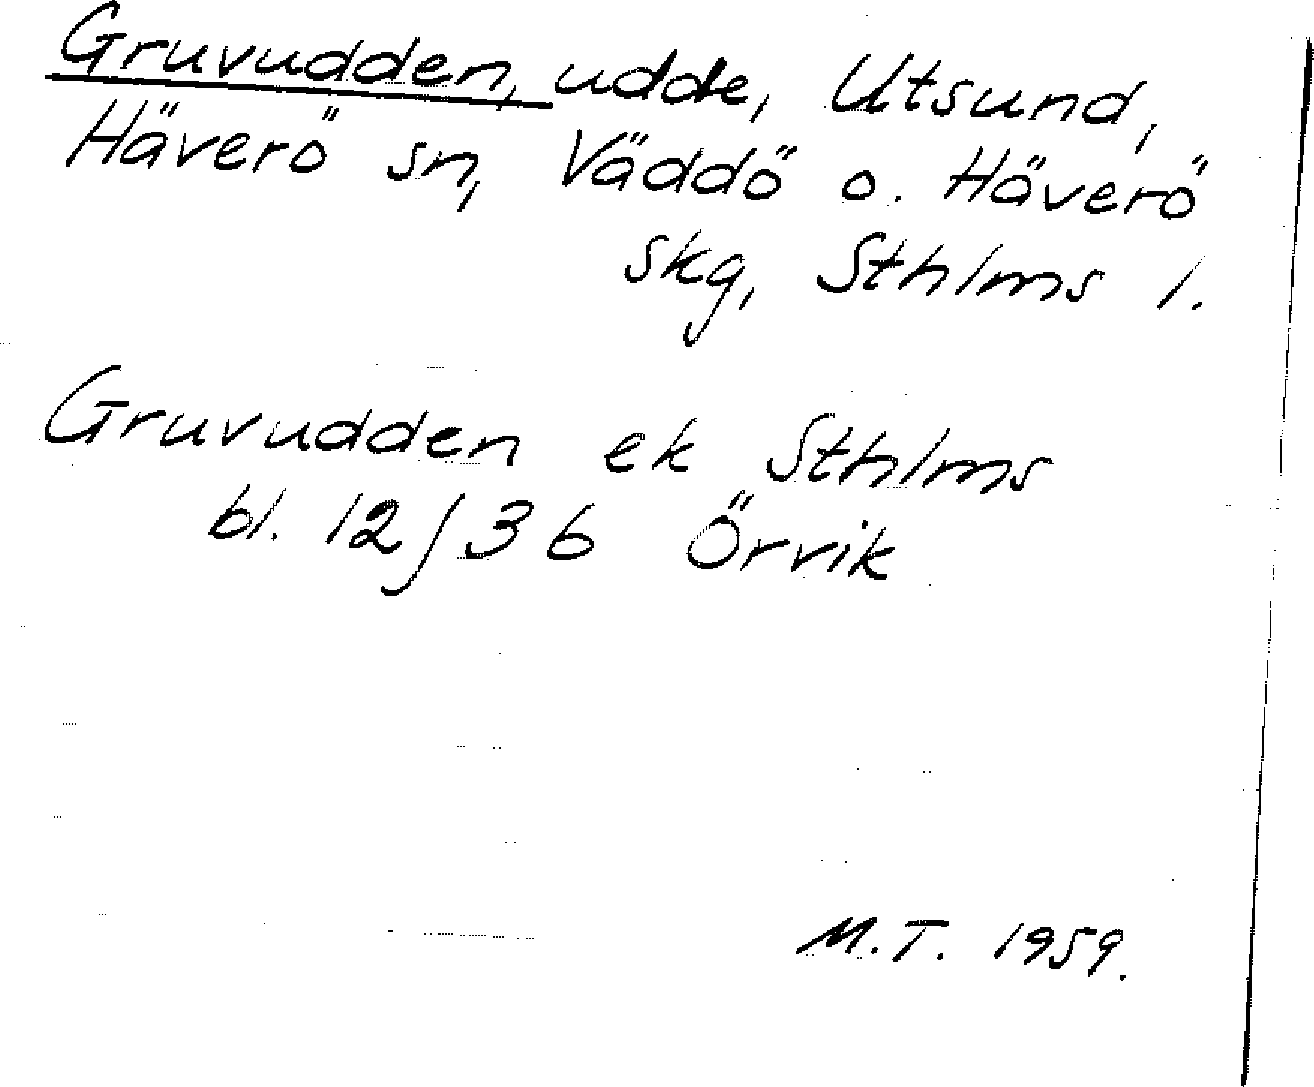 Gruvudden, udde, Utsund,
Häverö sn, Väddö o. Häverö
skg, Sthlms l.
Gruvudden ek Sthlms
bl. 12/36 Örvik
M.T. 1959.